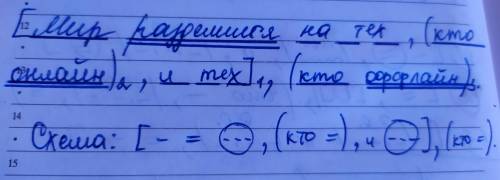 12 [Мир разделился на тех, (кто
онлайн)₂, и тех]₁, (кто оффлайн)₃.
14
Схема: [ - = (---), (кто =), и (---)], (кто =).
15